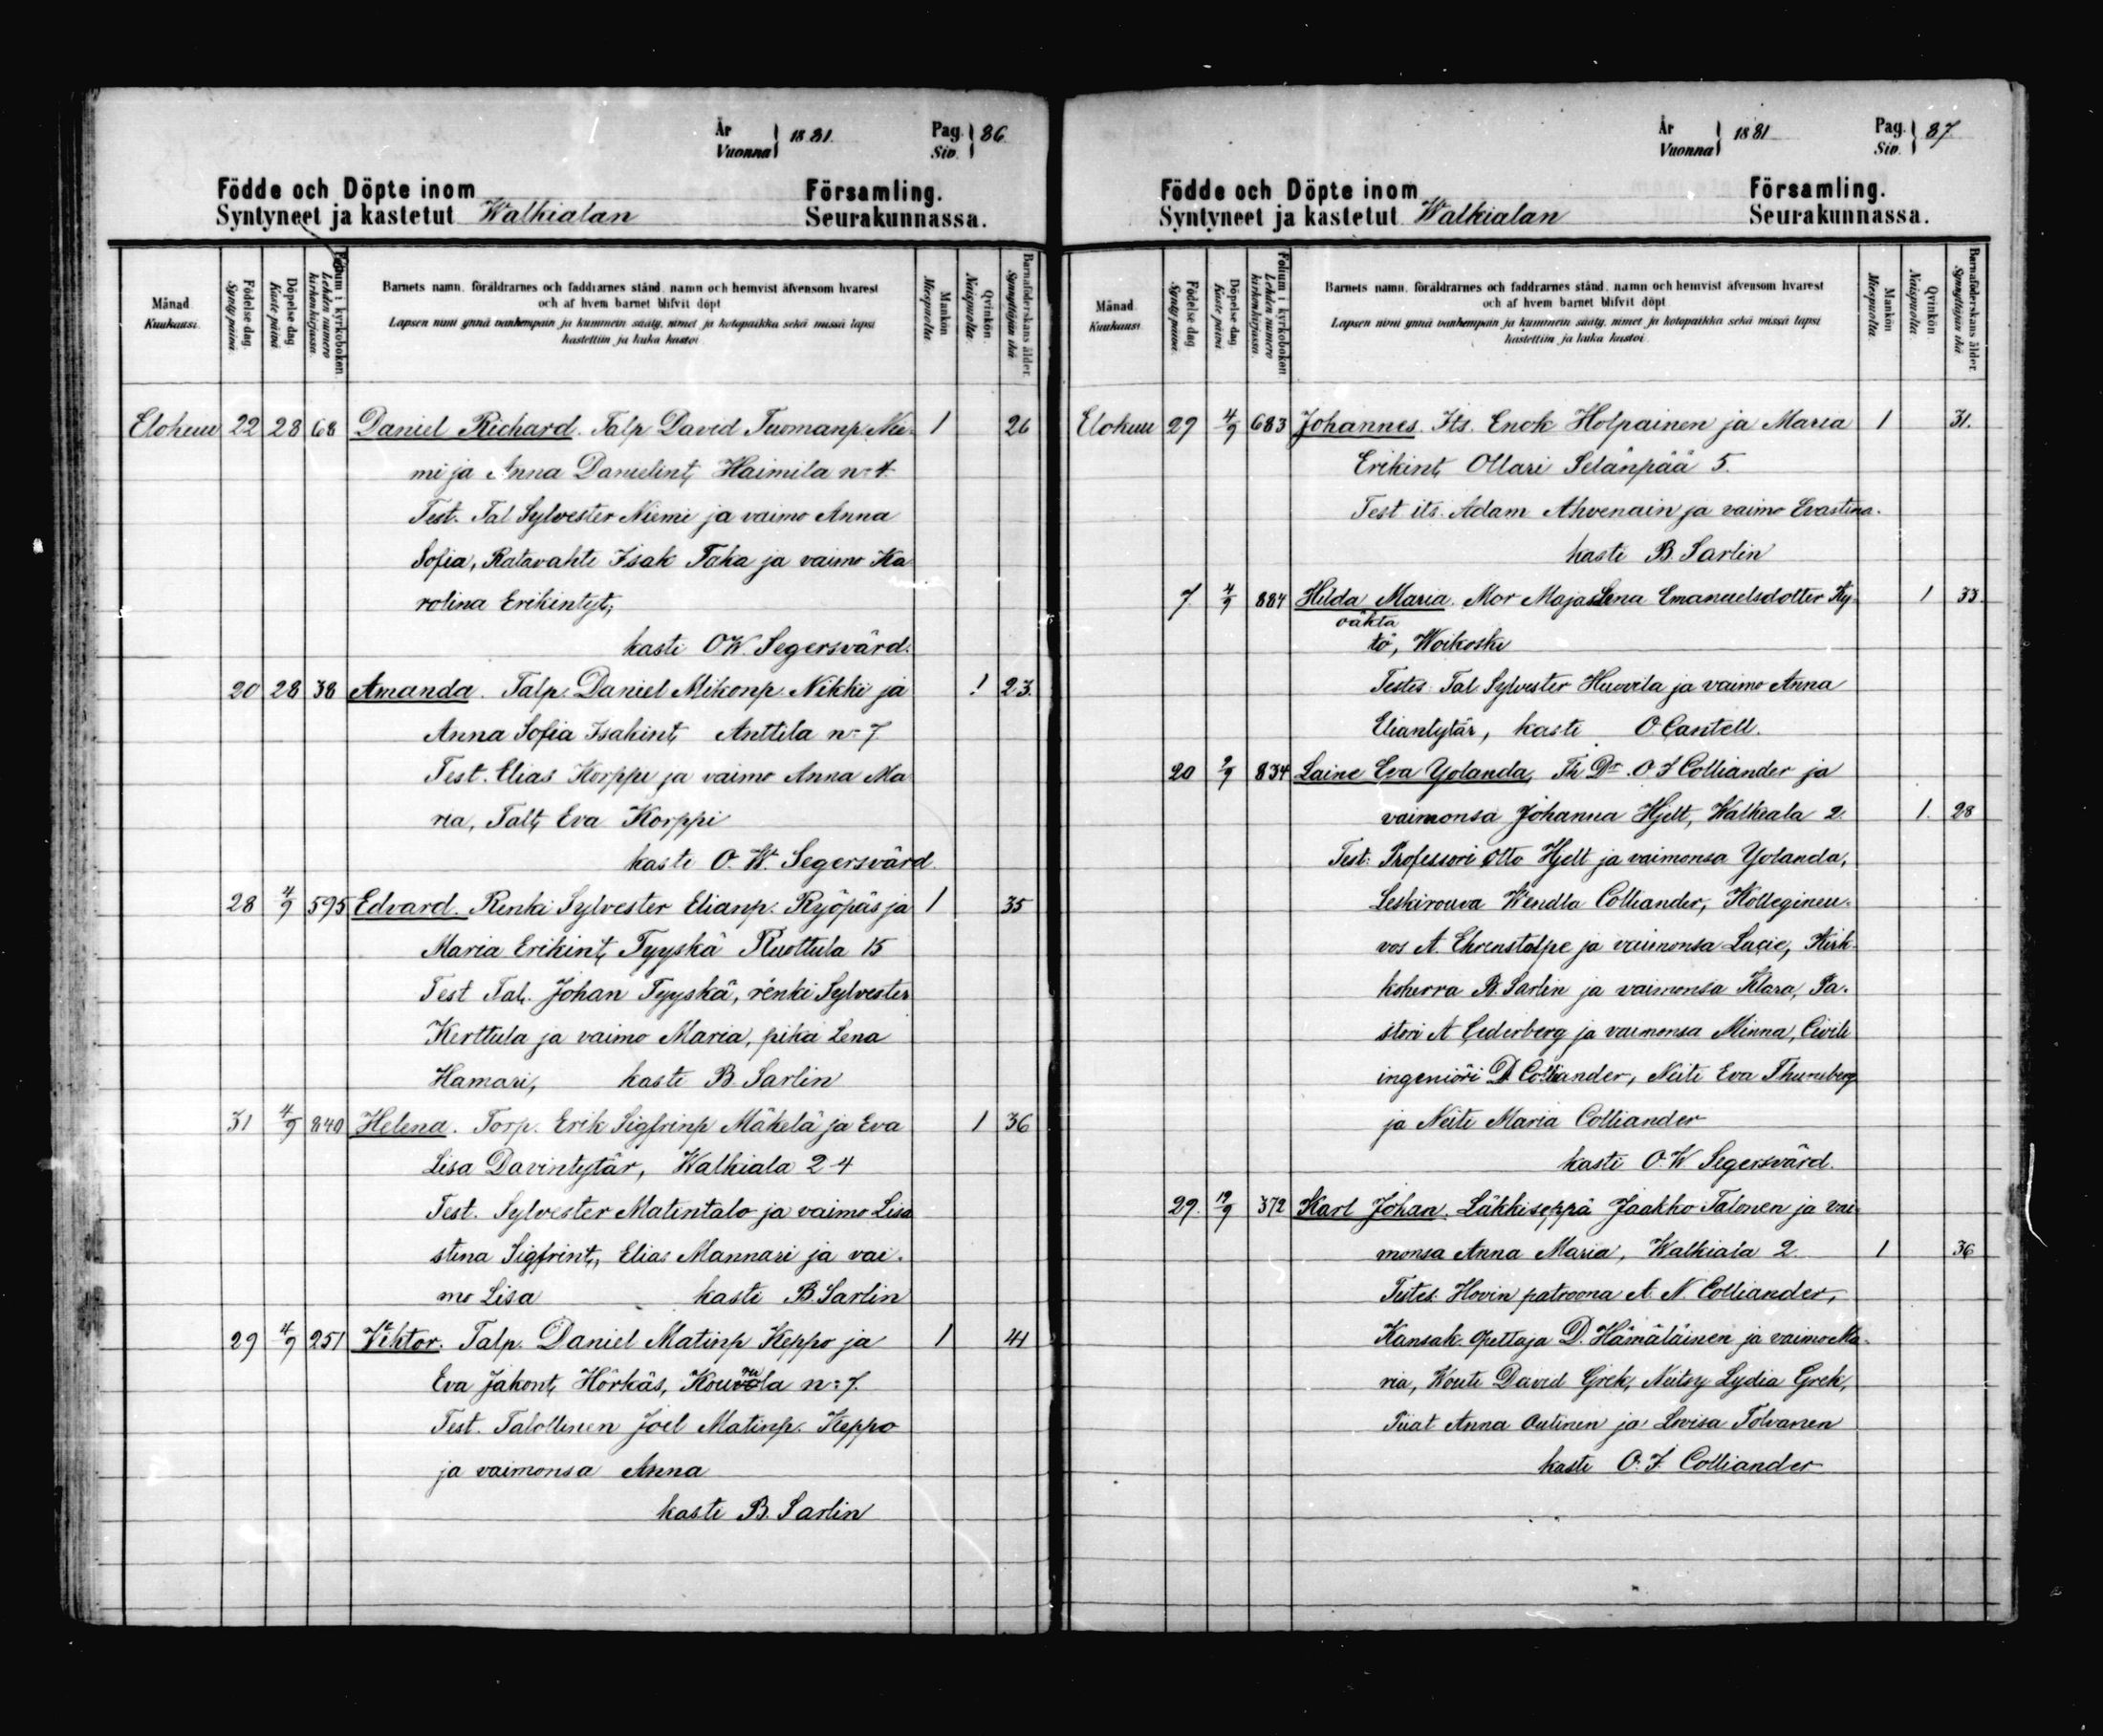 År
Vuonna } 1881. Pag. Siv. } 86
Födde och Döpte inom Församling.
Syntyneet ja kastetut Walkialan Seurakunnassa.
Månad. Kuukausi.
Födelse dag. Synty päivä.
Döpelse dag. Kaste päivä.
Folium i kyrkoboken. Lehden numero kirkonkirjassa.
Barnets namn, föräldrarnes och faddrarnes stånd, namn och hemvist äfvensom hvarest
och af hvem barnet blifvit döpt.
Lapsen nimi ynnä vanhempain ja kummein sääty, nimet ja kotopaikka sekä missä lapsi
kastettiin ja kuka kastoi.
Mankön Miespuolta.
Qvinkön. Naispuolta.
Barnaföderskans ålder. Synnyttäjän ikä.
Elokuu 22 28 68 Daniel Richard. Talp David Tuomanp. Nie- 1 26
mi ja Anna Danielint, Haimila n:o 4.
Test. Tal Sylvester Niemi ja vaimo Anna
Sofia, Ratavahti Isak Taka ja vaimo Ka
rolina Erikintyt,
kasti O W. Segersvärd.
20 28 38 Amanda. Talp. Daniel Mikonp. Nikki ja 1 23.
Anna Sofia Isakint, Anttila n:o 7
Test. Elias Korppi ja vaimo Anna Ma
ria, Talt, Eva Korppi
kasti O. W. Segersvärd
28 4/9 595 Edvard. Renki Sylvester Elianp. Ryöpäs ja 1 35
Maria Erikint, Tyyskä Ruottula 15
Test Tal. Johan Tyyskä, renki Sylvester
Kerttula ja vaimo Maria, pika Lena
Hamari, kasti B. Sarlin
31 4/9 840 Helena. Torp. Erik Sigfrinp Mäkelä ja Eva 1 36
Lisa Davintytär, Walkiala 2-4
Test. Sylvester Matintalo ja vaimo Lisa
stina Sigfrint, Elias Mannari ja vai.
mo Lisa kasti B. Sarlin
29 4/9 251 Viktor. Talp. Daniel Matinp Keppo ja 1 41
Eva Jakont, Hörkäs, Kouvola n:o 7.
Test. Talollinen Joel Matinp. Keppo
ja vaimonsa Anna
kasti B. Sarlin
År
Vuonna } 1881 Pag. Siv. } 87
Födde och Döpte inom Församling.
Syntyneet ja kastetut Walkialan Seurakunnassa.
Månad. Kuukausi.
Födelse dag. Synty päivä.
Döpelse dag. Kaste päivä.
Folium i kyrkoboken. Lehden numero kirkonkirjassa.
Barnets namn, föräldrarnes och faddrarnes stånd, namn och hemvist äfvensom hvarest
och af hvem barnet blifvit döpt.
Lapsen nimi ynnä vanhempain ja kummein sääty, nimet ja kotopaikka sekä missä lapsi
kastettiin ja kuka kastoi.
Mankön Miespuolta.
Qvinkön. Naispuolta.
Barnaföderskans ålder. Synnyttäjän ikä.
Elokuu 29 4/9 683 Johannes. Its. Enok Holpainen ja Maria 1 31.
Erikint, Ollari Selänpää 5.
Test its. Adam Ahvenain ja vaimo Evastina.
kasti B. Sarlin
7. 4/9 884 Hilda Maria. Mor Maja Lena Emanuelsdotter Ky- 1 33.
oäkta
tö, Woikoski
Testes: Tal Sylvester Huovila ja vaimo Anna
Eliantytär, kasti O Cantell.
20 2/9 834 Laine Eva Yolanda, Th Dr. O. I Colliander ja
vaimonsa Johanna Hjelt, Walkiala 2. 1. 28
Test: Professori Otto Hjelt ja vaimonsa Yolanda,
Leskirouva Wendla Colliander, Kollegineu-
vos A. Ehrnstolpe ja vaimonsa Lucie, Kirk-
koherra B. Sarlin ja vaimonsa Klara, Pa-
stori A Cederberg ja vaimonsa Minna, Civili
ingeniöri D. Colliander, Neiti Eva Thuneberg
ja Neiti Maria Colliander
kasti O. W Segersvärd.
29. 19/9 372 Karl Johan. Läkkiseppä Jaakko Talonen ja vai-
monsa Anna Maria, Walkiala 2. 1 36
Testes: Hovin patroona A. N. Colliander,
Kansak. opettaja D. Hämäläinen ja vaimo Ma-
ria, Kouti David Grek, Neitsy Lydia Grek,
Piiat Anna Outinen ja Lovisa Tolvanen
kasti O. I. Colliander